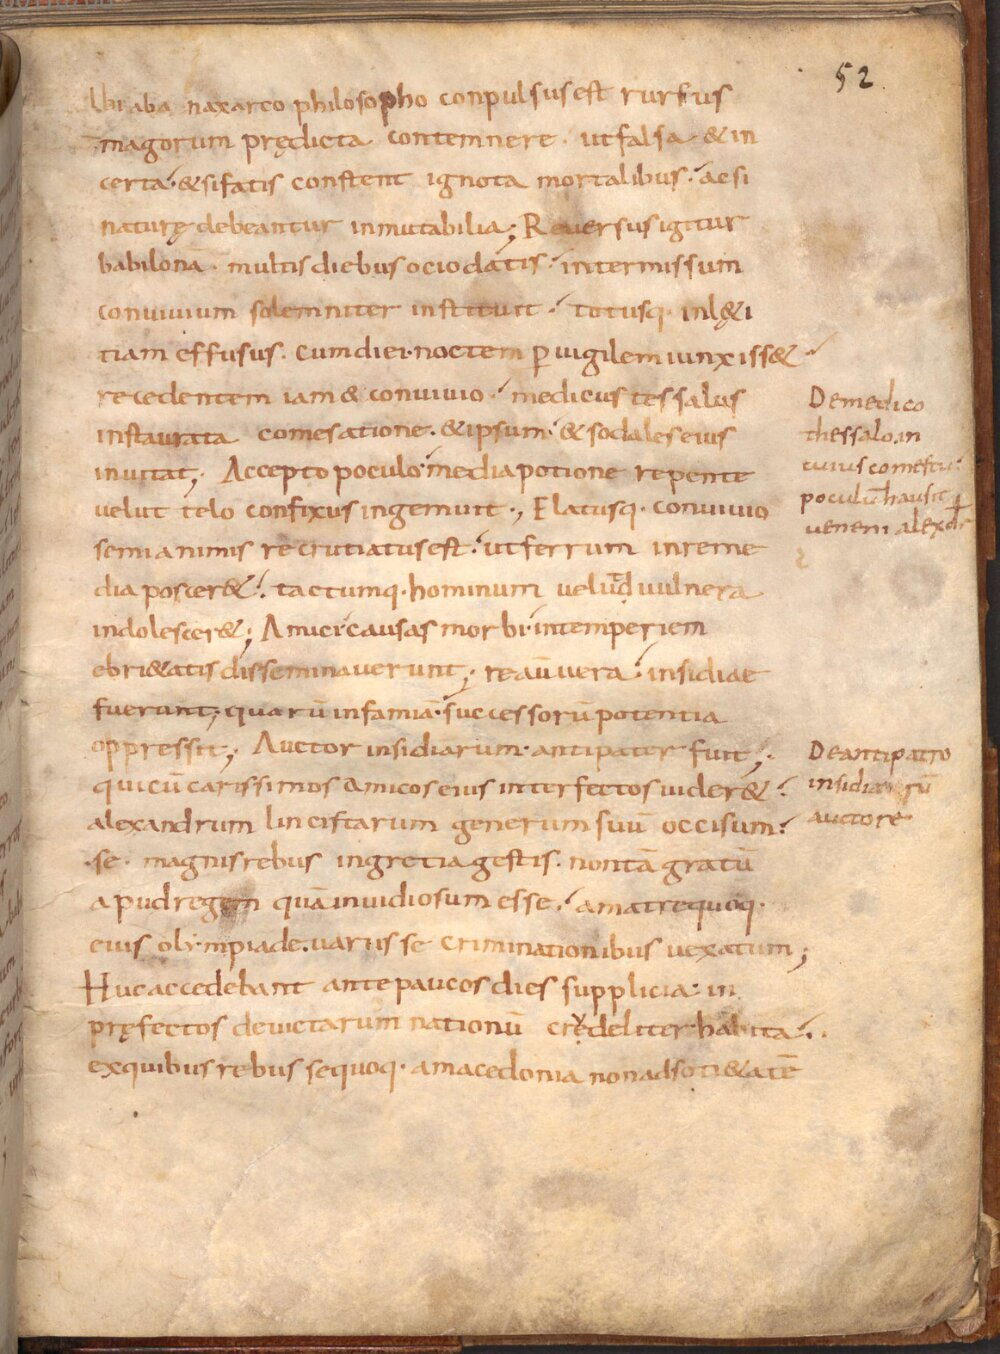 52
Ubi ab anaxarco philosopho conpulsus est rursus
magorum prędicta contemnere. ut falsa & in
certa. & si fatis constent ignota mortalibus. ac si
naturę debeantur inmutabilia; Reversus igitur
babiloniā. multis diebus ocio datis. intermissum
convivium solemniter instituit. totusq. in lę&i
tiam effusus. cum diei noctem ꝑvigilem iunxiss&
recedentem iam e convivio. medicus tessalus
instaurata comesatione. & ipsum. & sodales eius
invitat; Accepto poculo media potione repente
velut telo confixus ingemuit; Elatusq. convivio
semianimis re cruciatus est. ut ferrum in reme
dia poscer&. tactumq. hominum velud vulnera
indolescer&; Amici causas morbi intemperiem
ebri&atis disseminaverunt; re aū vera. insidiae
fuerunt; quarū infamiā successorū potentia
oppressit; Auctor insidiarum antipater fuit;
qui cū carissimos amicos eius interfectos vider&.
alexandrum linciftarum generum suū occisum.
se magnis rebus in gretia gestis. non tā gratū
apud regem quā invidiosum esse. a matre quoq.
eius olympiade. variis se criminationibus vexatum;
Huc accedebant ante paucos dies supplicia in
pręfectos devictarum nationū crudeliter habita.
ex quibus rebus se quoq. a macedonia non ad soti&atē
De medico
thessalo. in
cuius comestu
poculū hausit
veneni alexder
De antipatro
insidiarū
auctore